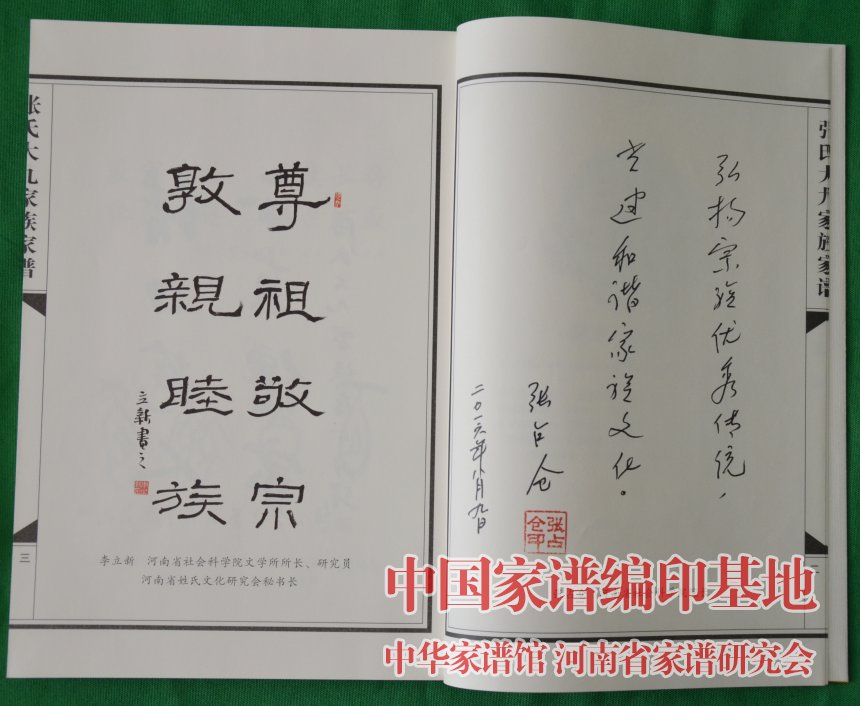 弘扬宗族优秀传统，
共建和谐家族文化。
张占仓
二〇一六年八月九日
张占
仓印
二
张氏大九家族家谱
尊祖敬宗
敦親睦族
立新書之
李立新 河南省社会科学院文学所所长、研究员
河南省姓氏文化研究会秘书长
三
中国家谱编印基地
中华家谱馆 河南省家谱研究会